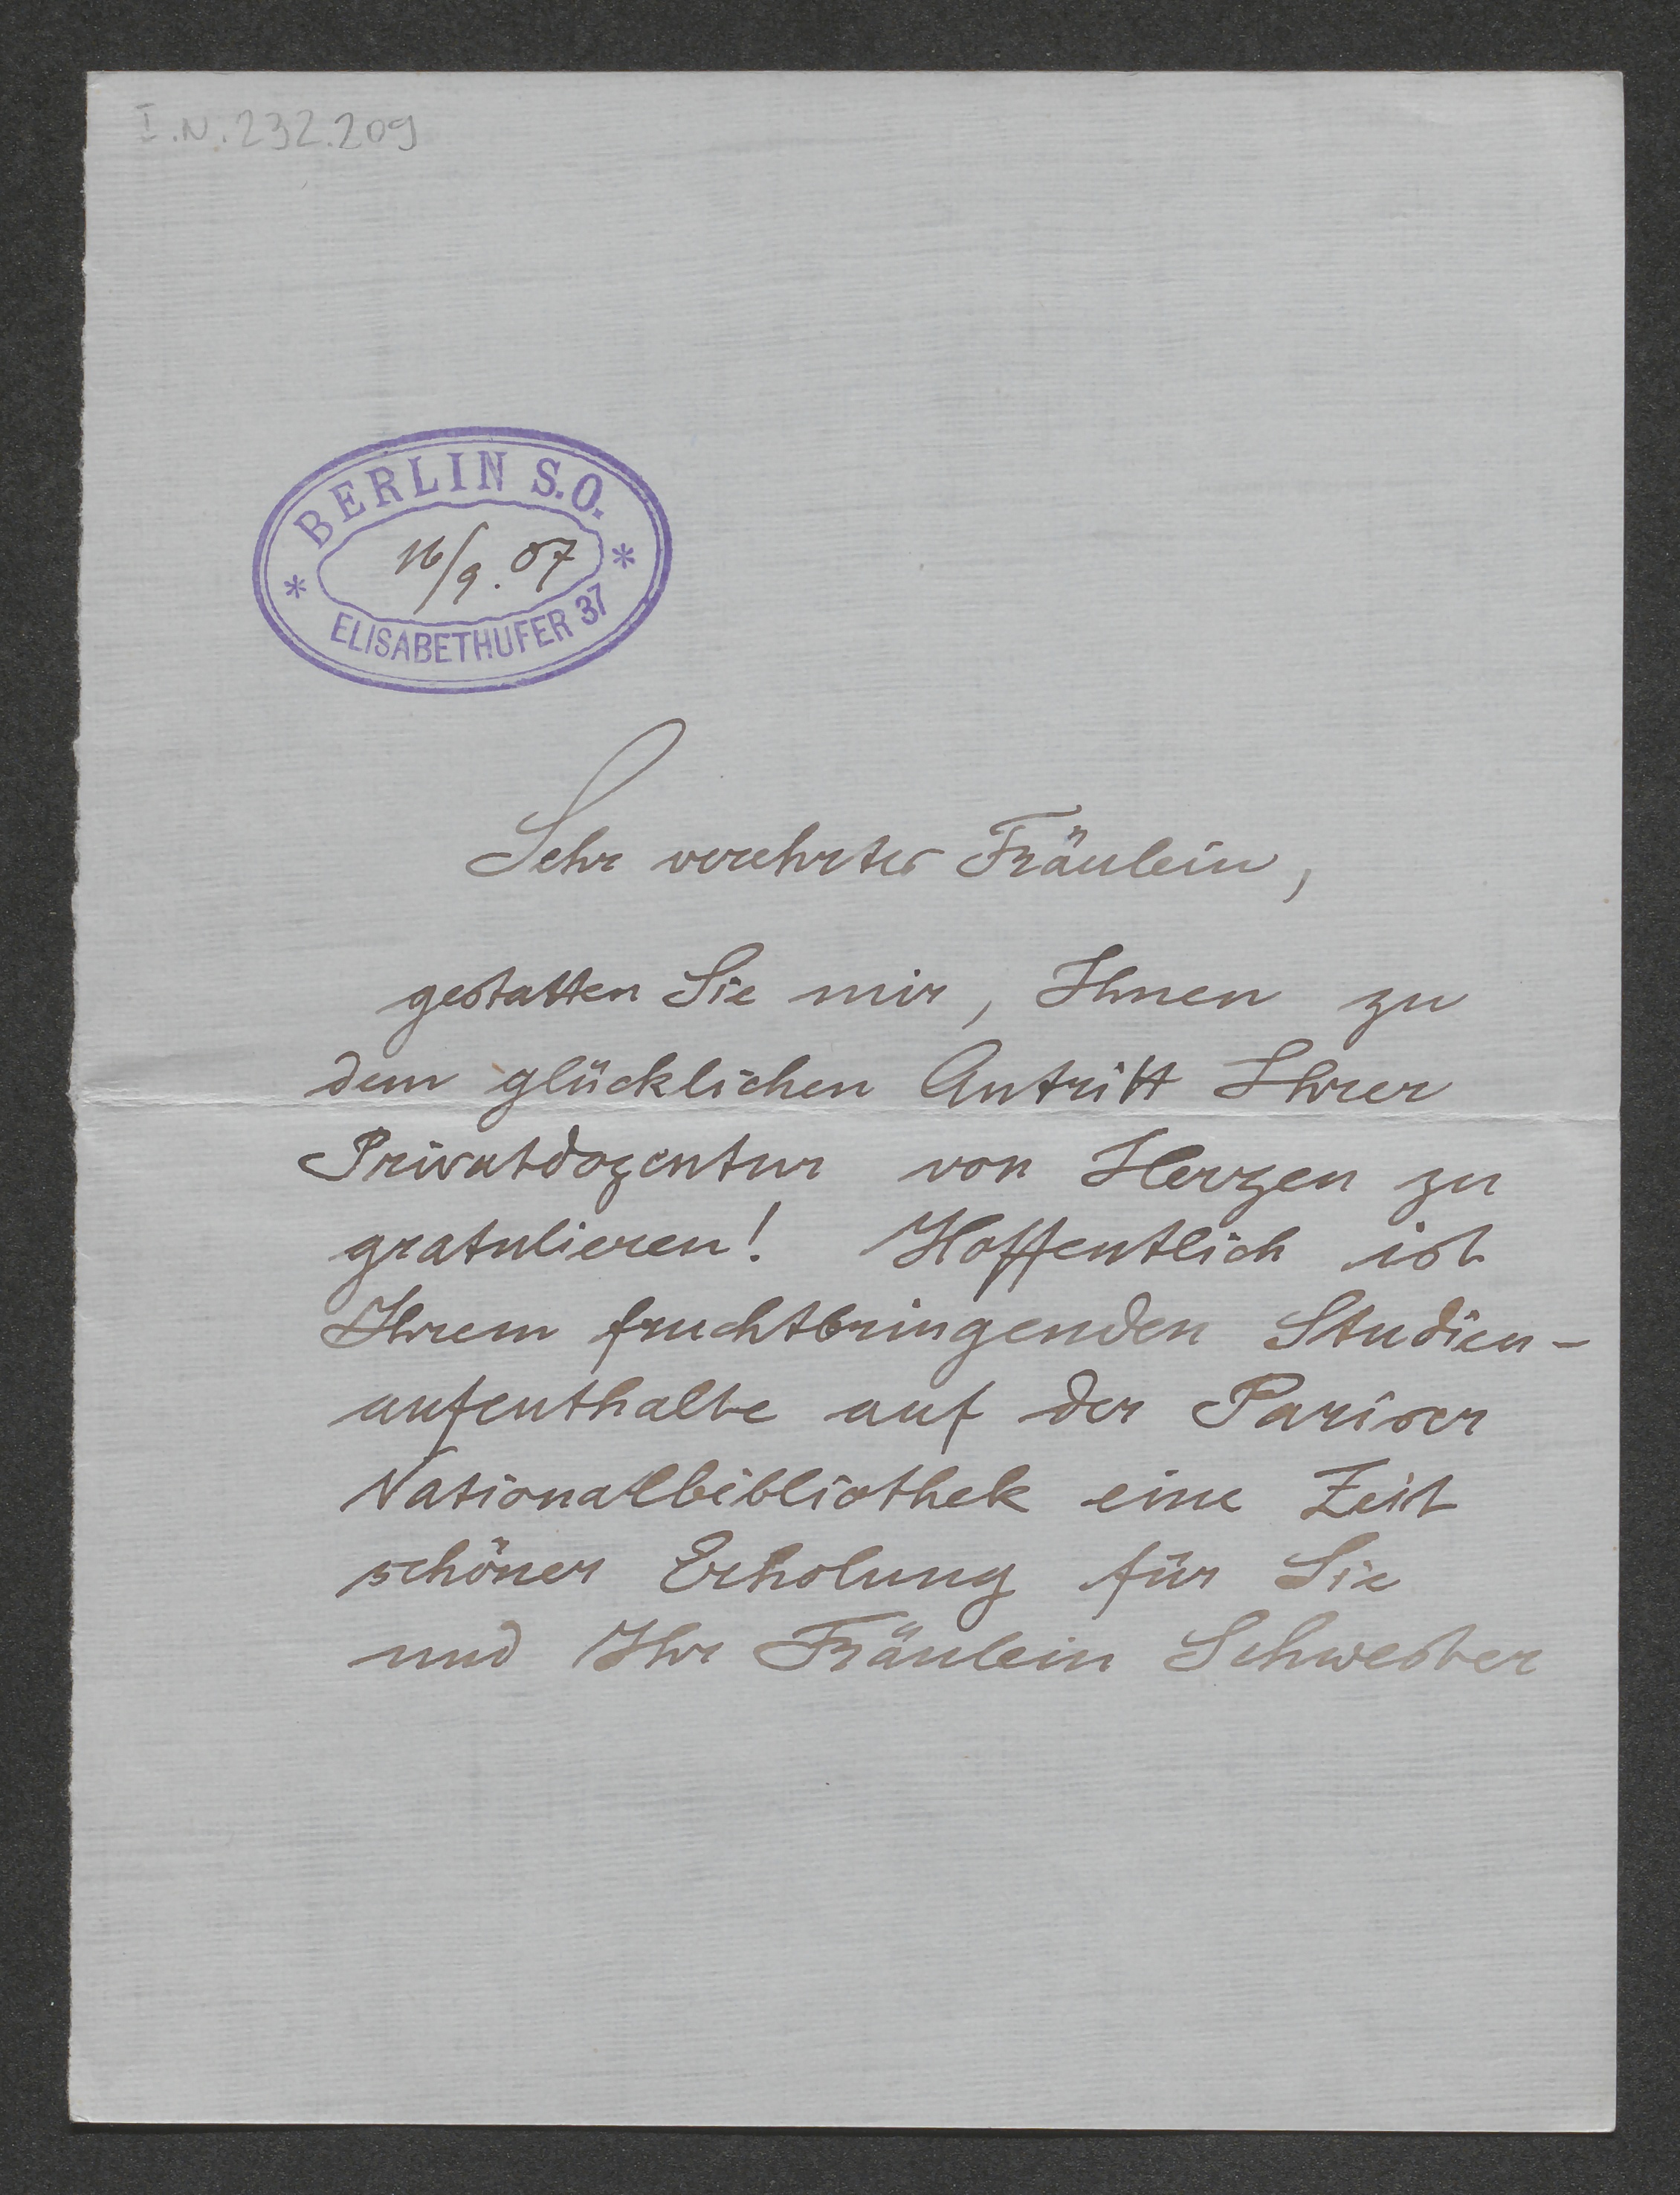 I.N. 232.209
BERLIN S.O.
16/9. 07
* *
ELISABETHUFER 37
Sehr verehrtes Fräulein,
gestatten Sie mir, Ihnen zu
dem glücklichen Antritt Ihrer
Privatdozentur von Herzen zu
gratulieren! Hoffentlich ist
Ihrem fruchtbringenden Studien-
aufenthalte auf der Pariser
Nationalbibliothek eine Zeit
schöner Erholung für Sie
und Ihr Fräulein Schwester